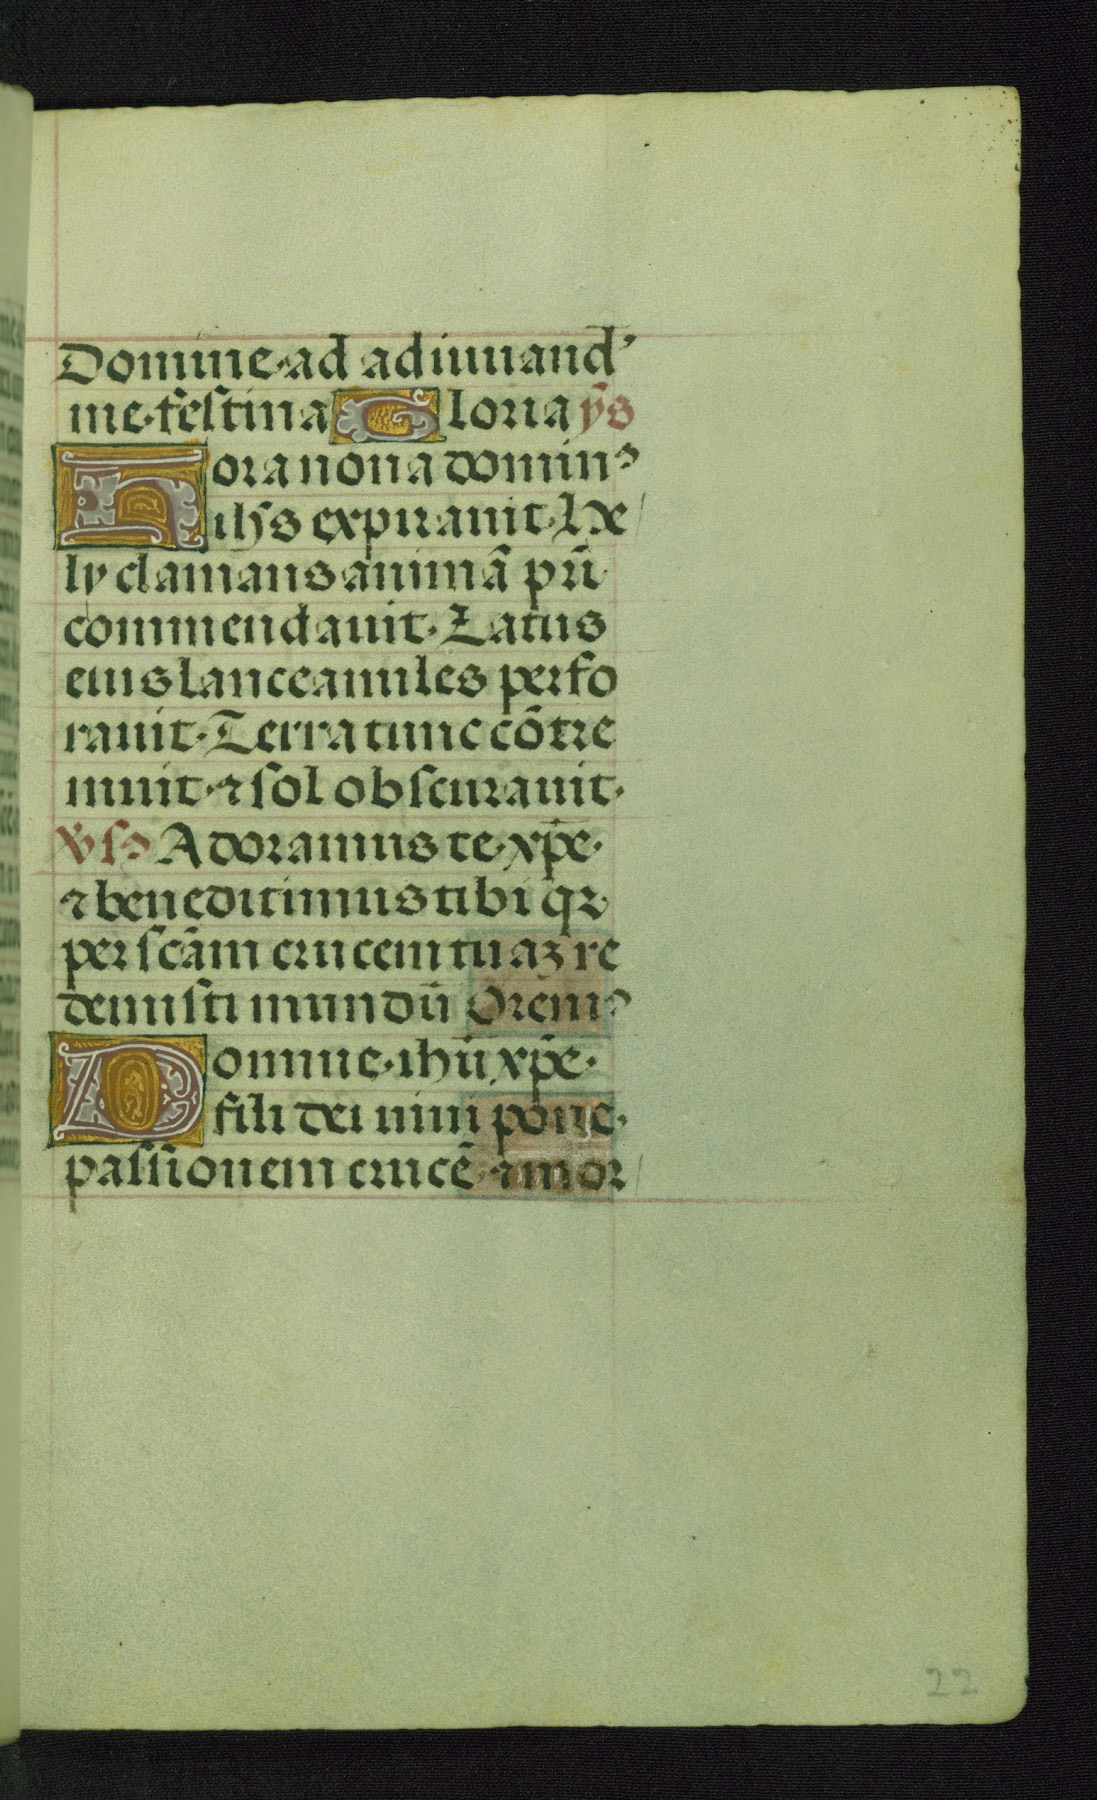 Domine·ad adiuuand̄’
me·festina Gloria ys̄
Hora nona domin⁹
ihs expirauit·he
ly clamans animā pr̄i·
commendauit·Latus
eius lancea miles perfo
rauit·Terra tunc cōtre
muit·⁊ sol obscurauit·
v̄s⁹ Adoramus te·xp̄e·
⁊ beneditimus tibi q̄ꝛ·
per sc̄am crucem tuaʒ re
demisti mundū Orem⁹
Domine·ihū xp̄e·
fili dei uiui pone·
passionem crucē·⁊ mor
22